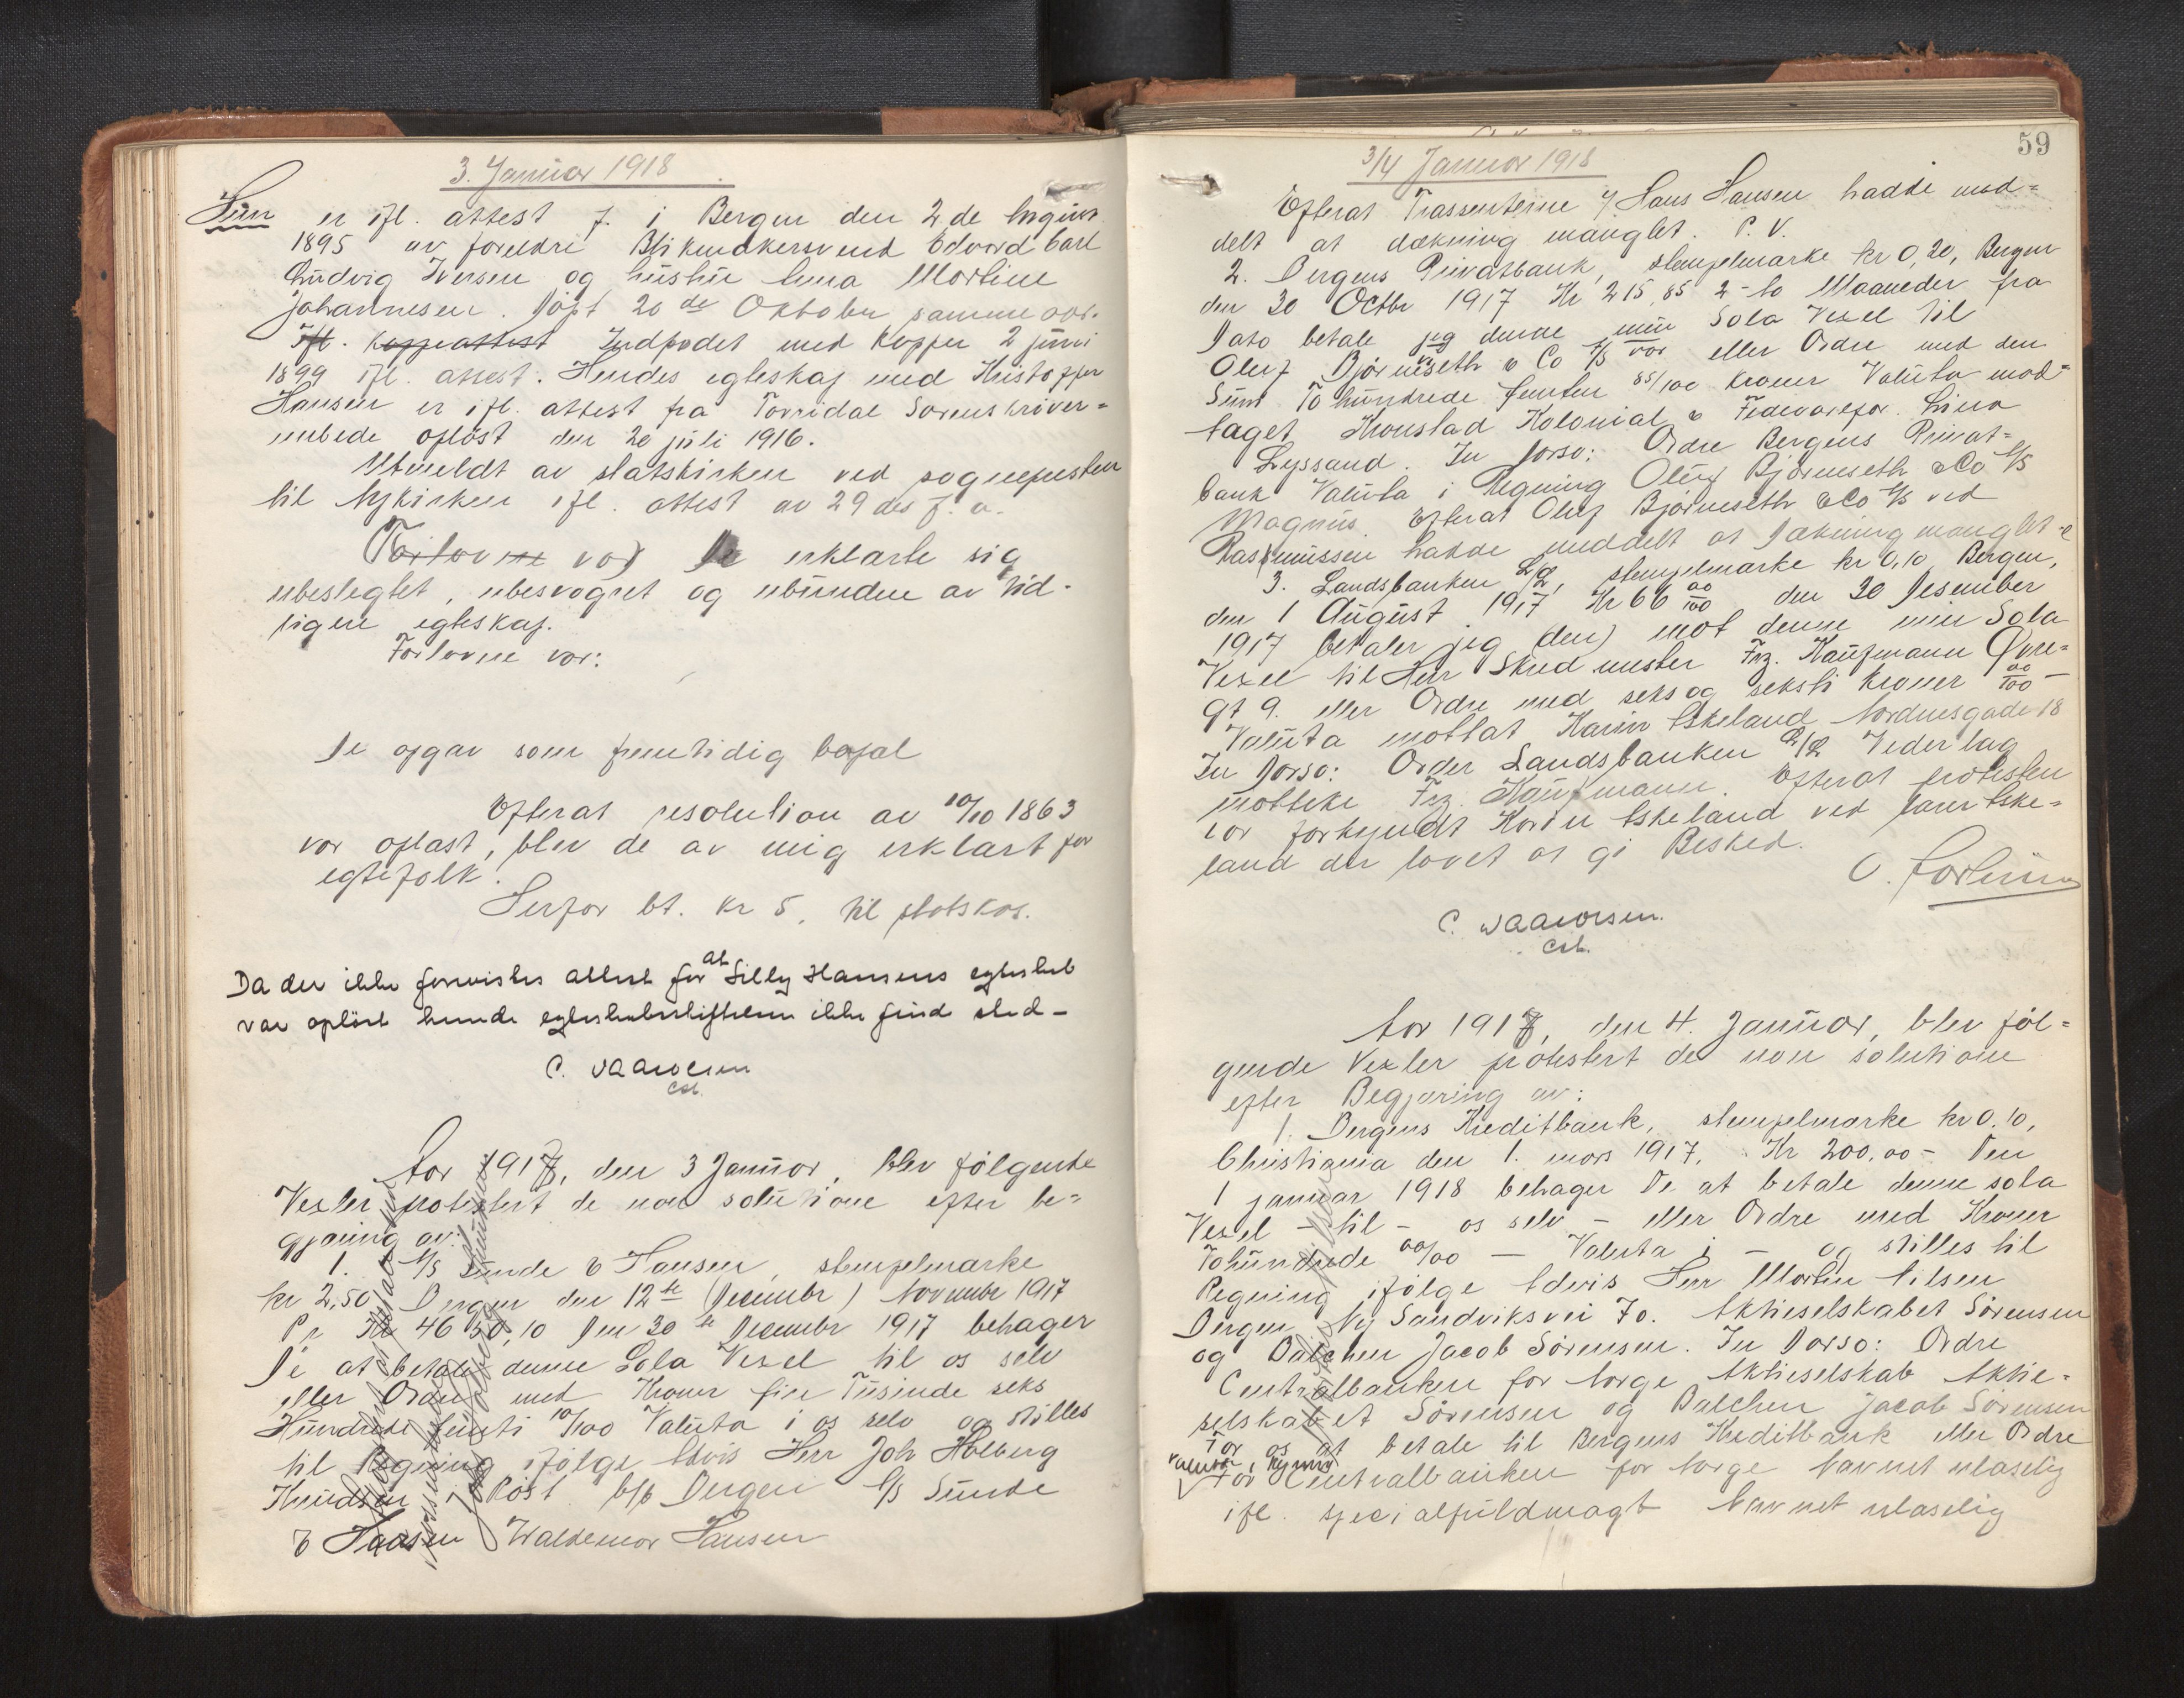 3. Januar 1918
Hun er ifl. attest f. i Bergen den 2 de August
1895 av foreldre Blikmakersvend Edvard Carl
Ludvig Iversen og hustru Anna Martine
Johannesen. Døpt 20 de Oktober samme aar.
Ifl. koppeattest Indpodet med Kopper 2 juni
1899 ifl. attest. Hendes egteskap med Kristoffer
Hansen er ifl. attest fra Torridal Sorenskriver=
embede opløst den 20 juli 1916.
Utmeldt av statskirken ved sognepresten
til Nykirken ifl. attest av 29 des f. a.
Forlovere var De erklærte sig
ubeslegtet, ubesvogret og ubundne av tid-
ligere egteskap.
Forlovere var:
De opgav som fremtidig bopæl
Efterat resolution av 10/10 1863
var oplæst, blev de av mig erklært for
egtefolk.
Herfor bt. kr 5, til statskas.
Da der ikke forevistes attest for at Lilly Hansens egteskab
var opløst kunde egteskabsstiftelsen ikke finde sted-
C. Waarvesen
cst.
Aar 1918, den 3 Januar, blev følgende
Vexler protestert de non solutione efter be=
gjæring av:
1. A/S Sunde & Hansen, stempelmarke
kr 2,50, Bergen den 12 te (Decembr) Novembr 1917
Pr Kr 4650,10 Den 30 te Decembr 1917 behager
De at betale denne Sola Vexel til os selv
eller Ordre med Kroner fire Tusinde seks
Hundrede femti 10/100 Valuta i os selv og stilles
til Regning ifølge Advis Herr Joh Holberg
Knudsen Røst b/b Bergen A/S Sunde
& Hansen Waldemar Hansen
59
3/4 Januar 1918
Efterat Trassenterne v/ Hans Hansen hadde med=
delt at dækning manglet. P. V.
2. Bergens Privatbank, stempelmarke kr 0,20, Bergen
den 30 Octbr 1917 Kr 215,85 2-to Maaneder fra
Dato betale jeg denne min Sola Vexel til
Oluf Bjørneseth & Co A/S vor eller Ordre med den
Sum To hundrede femten 85/100 Kroner Valuta mod=
taget Kronstad Kolonial & Fedevarefor. Lina
Lyssand. In dorso: Ordre Bergens Privat=
bank Valuta i Regning Oluf Bjørneseth & Co A/S
Magnus. Efterat Oluf Bjørneseth & Co A/S ved
Rasmussen hadde meddelt at Dækning manglet
3. Landsbanken A/L, stempelmarke kr 0,10 Bergen,
den 1 August 1917 Kr 66 00/100 den 30 Desember
1917 betaler jeg (den) mot denne min Sola
Vexel til Herr Skredmester Frz. Kaufmann Øvre=
gt 9. eller Ordre med seks og seksti Kroner 00/100 -
Valuta mottat Karin Askeland Nordnesgade 18
In Dorso: Order Landsbanken A/L Vederlag
motteke Frz. Kaufmann. Efterat protesten
var forkyndt Karin Askeland ved Aske=
land der lovet at gi Besked.
C. Waarvesen.
cst.
Aar 1918, den 4. Januar, blev føl=
gende Vexler protestert de non solutione
efter Begjæring av:
1. Bergens Kreditbank, stempelmarke kr 0.10,
Christiania den 1. mars 1917. Kr 200.00 - Den
1 januar 1918 behager De at betale denne sola
Vexel - til - os selv - eller Ordre med Kroner
Tohundrede 00/00 - Valuta i - og stilles til
Regning ifølge Advis Herr Martin Nilsen
Bergen Ny Sandviksvei 70. Aktieselskabet Sørensen
og Balchen Jacob Sørensen. In Dorso: Ordre
Centralbanken for Norge Aktieselskab Aktie-
selskabet Sørensen og Balchen Jacob Sørensen
For os at betale til Bergens Kreditbank eller Ordre
valuta i Regning
For Centralbanken for Norge Navnet ulæselig
ifl. specialfuldmagt Navnet ulæselig